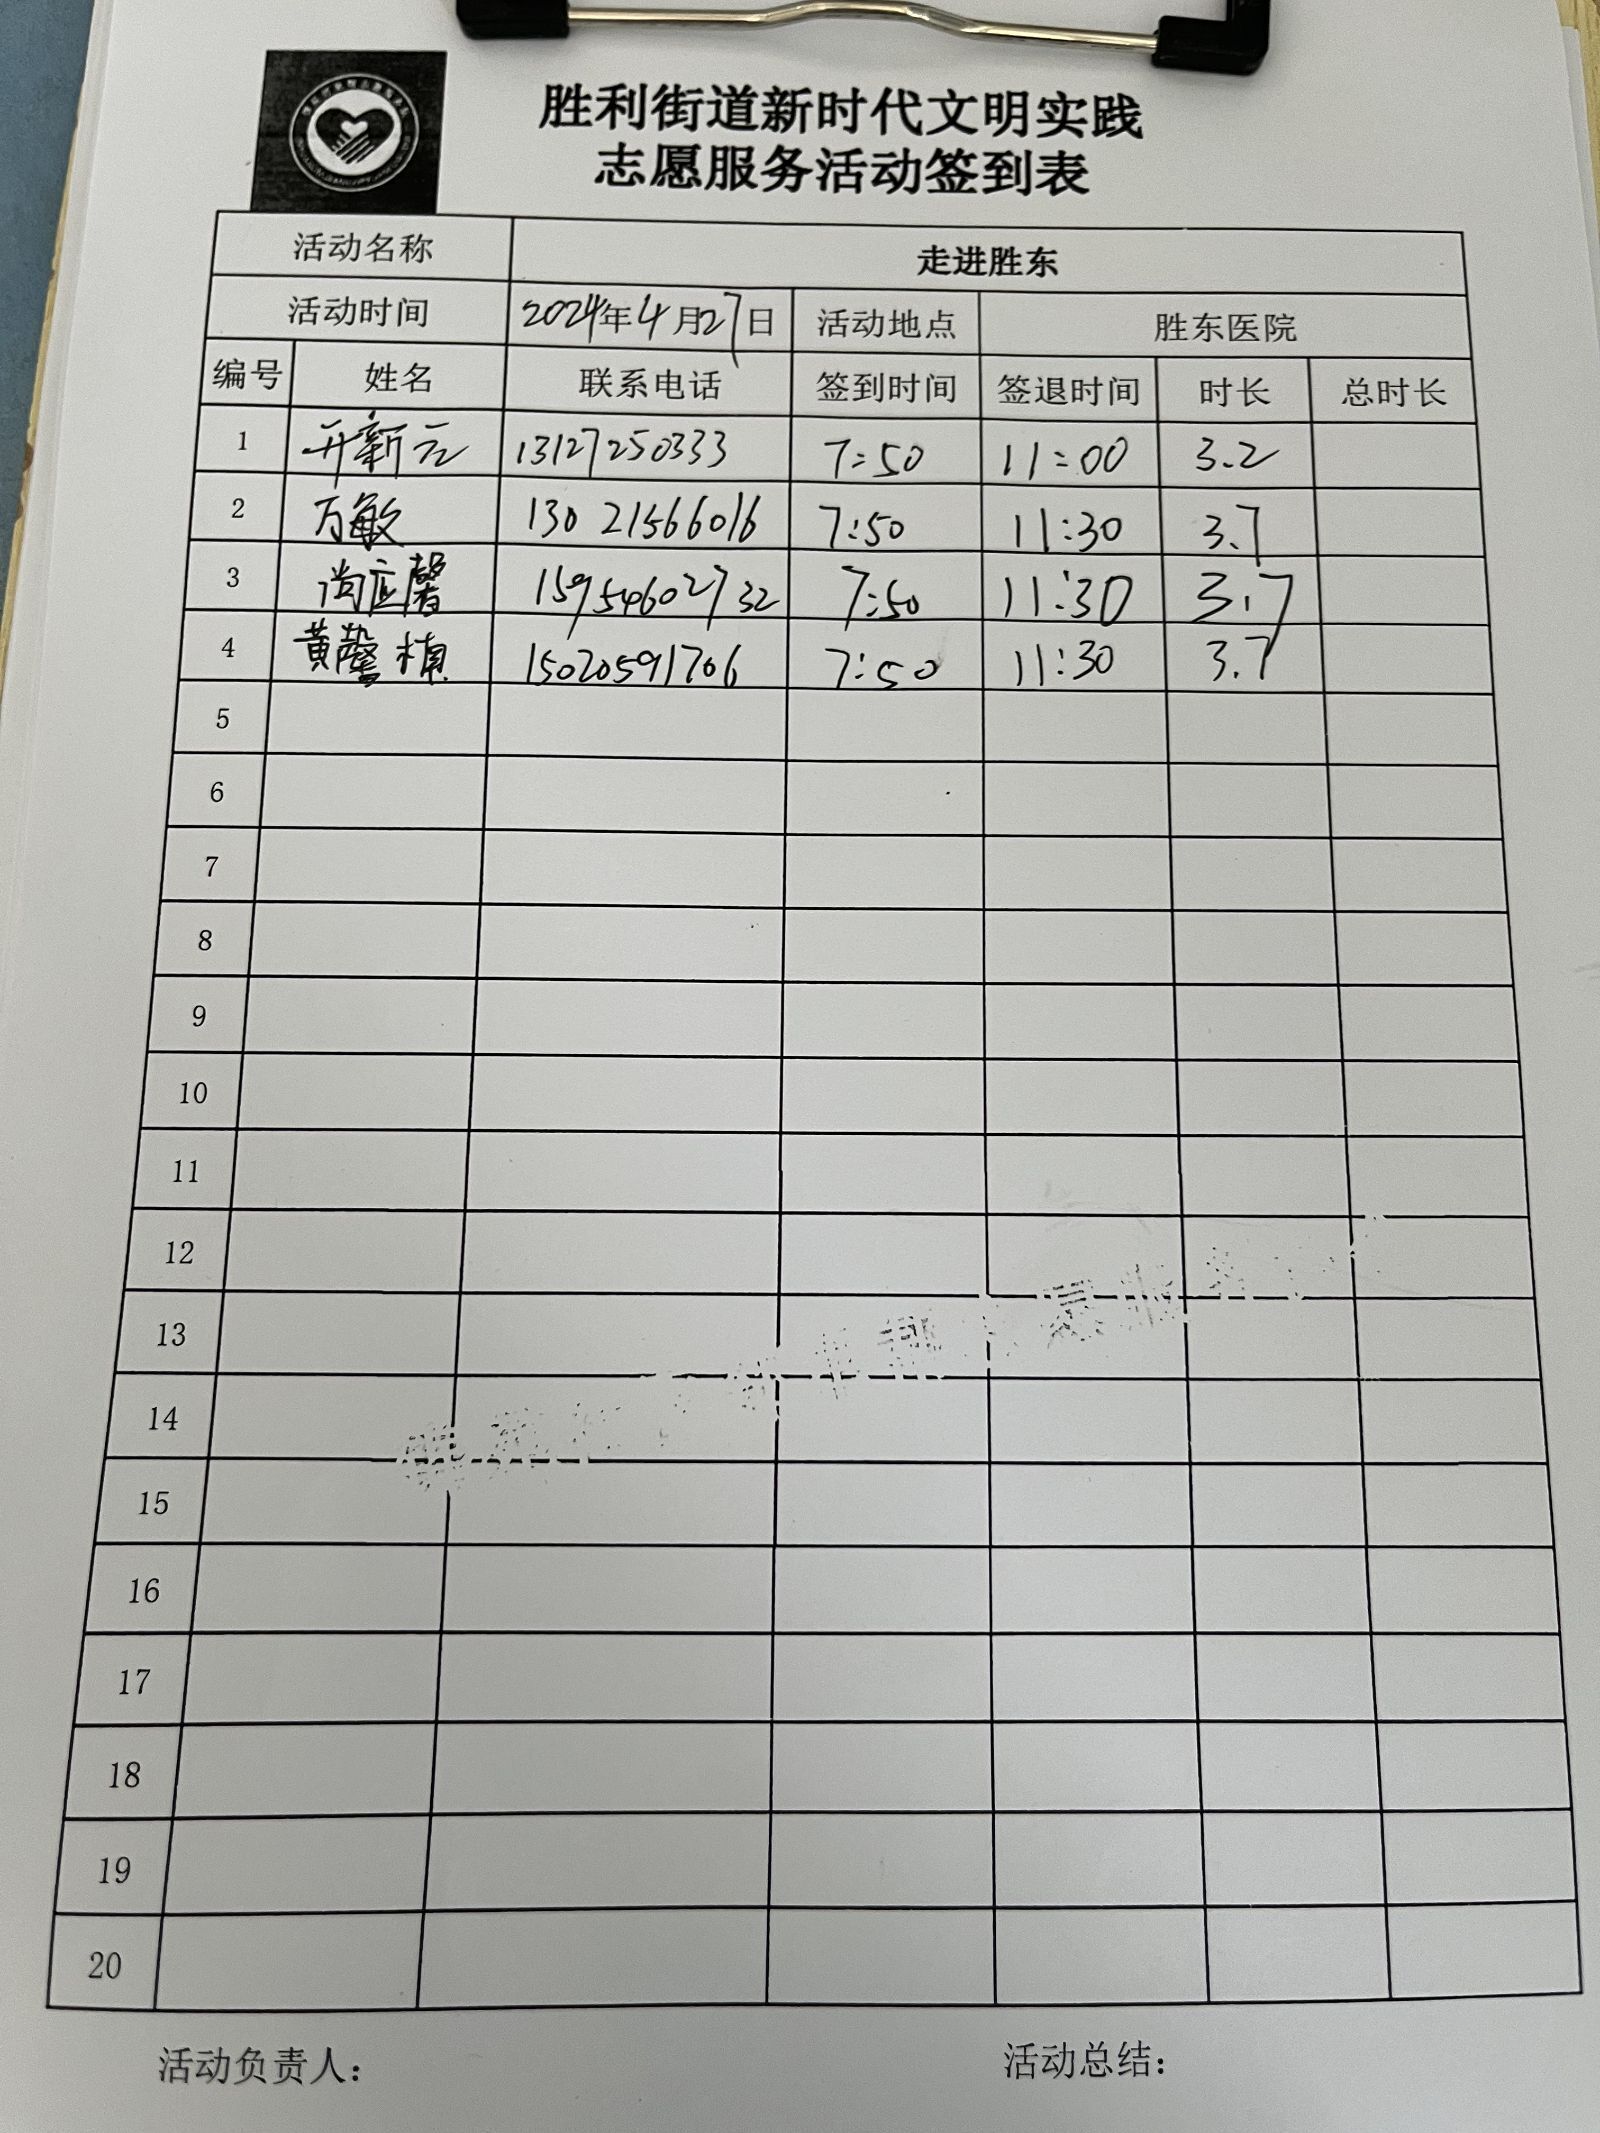 胜利街道新时代文明实践
志愿服务活动签到表
活动名称 走进胜东
活动时间 2024年4月27日 活动地点 胜东医院
编号 姓名 联系电话 签到时间 签退时间 时长 总时长
1 开新元 13127250333 7:50 11:00 3.2
2 万敏 13021566016 7:50 11:30 3.7
3 尚应馨 15954602732 7:50 11:30 3.7
4 黄馨楠 15020591706 7:50 11:30 3.7
5
6
7
8
9
10
11
12
13
14
15
16
17
18
19
20
活动负责人： 活动总结：